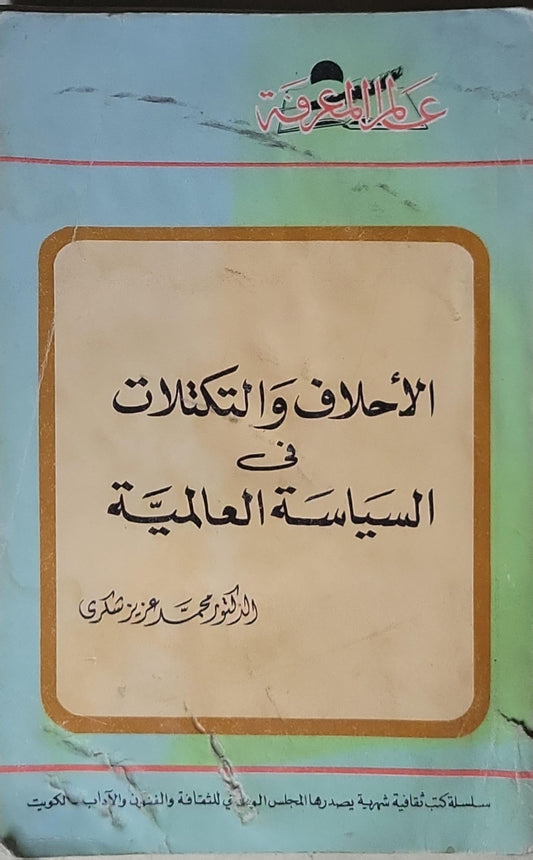 عالم المعرفة
الأحلاف والتكتلات
في
السياسة العالمية
الدكتور محمد عزيز شكري
سلسلة كتب ثقافية شهرية يصدرها المجلس الوطني للثقافة والفنون والآداب - الكويت